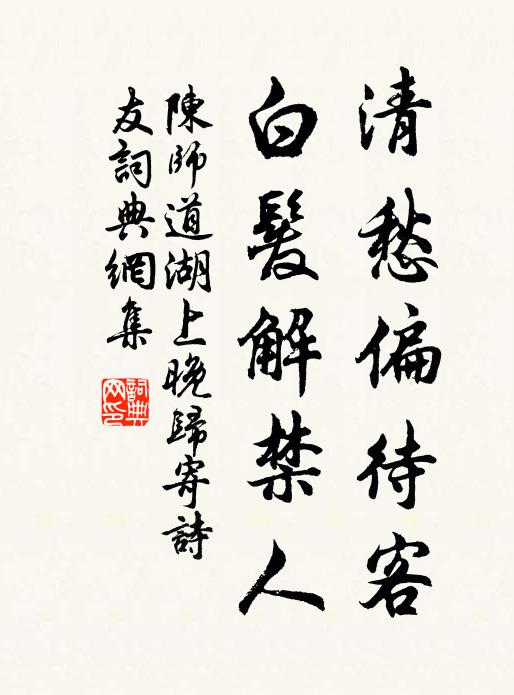 清愁偏待客
白髮解禁人
陳師道湖上晚歸寄詩
友詞典網集
詞典
网印